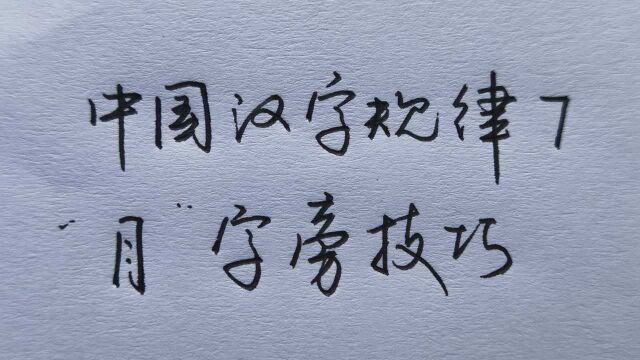 中国汉字规律7
“月”字旁技巧